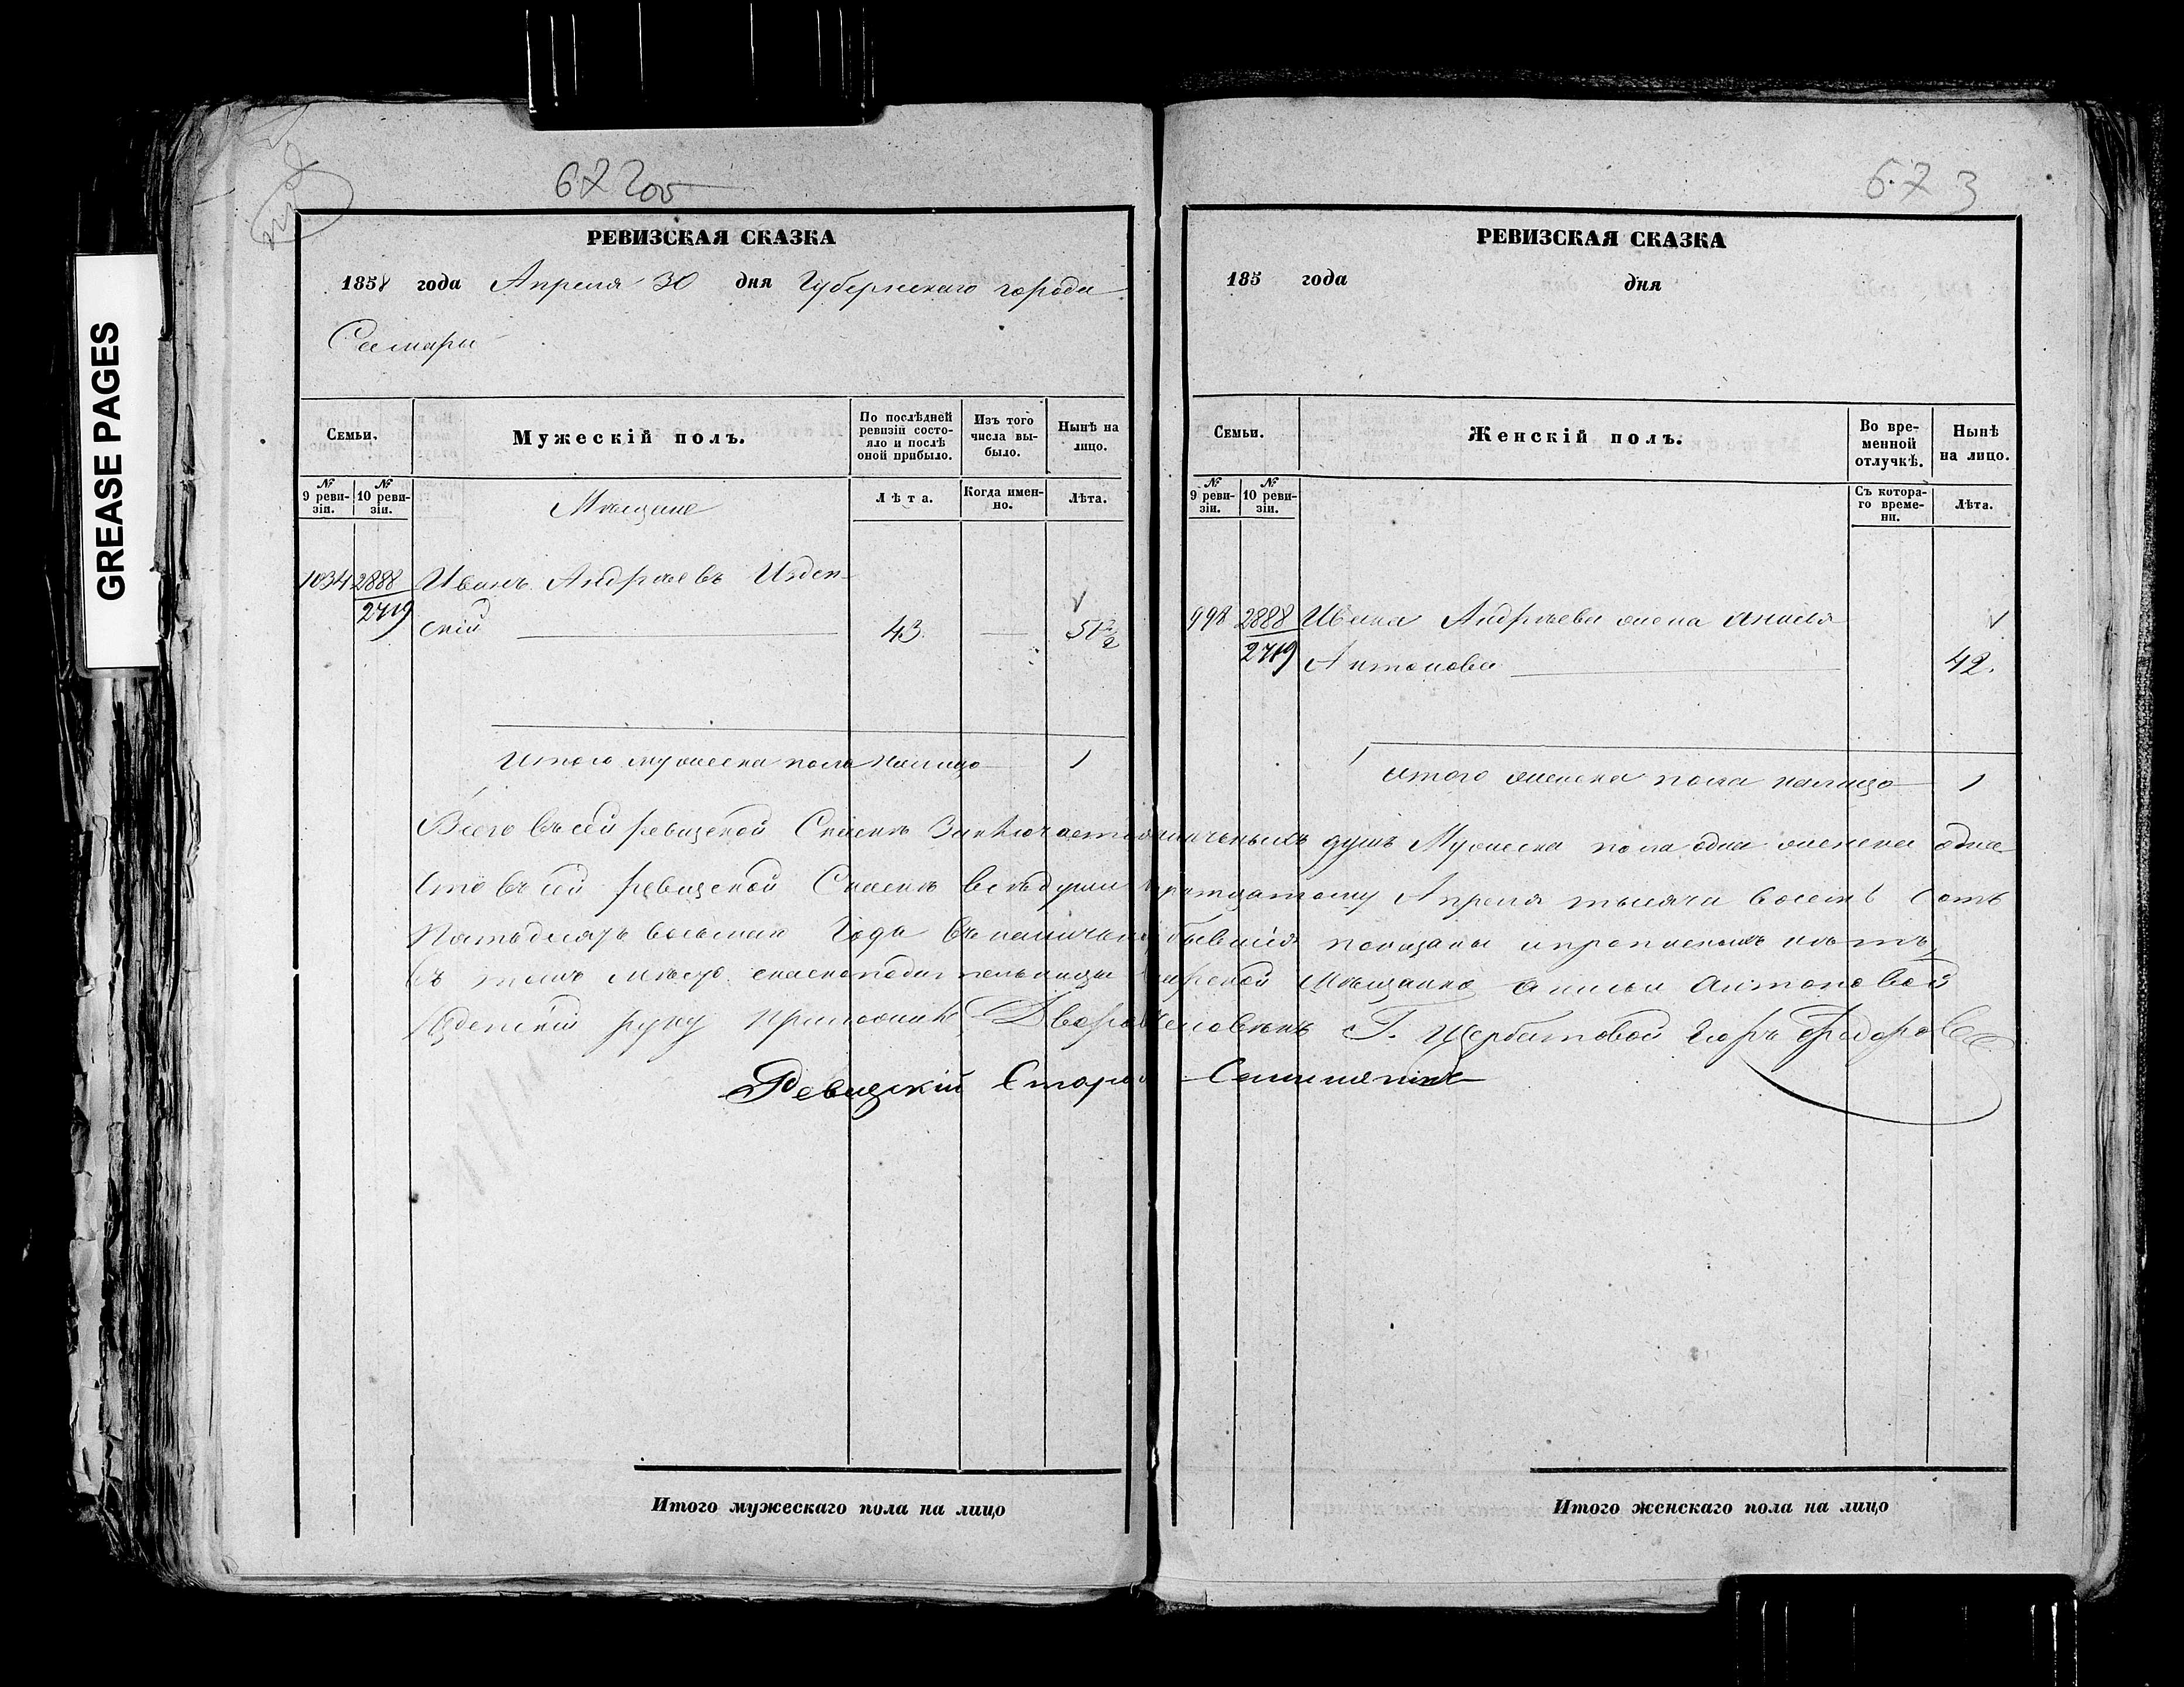 GREASE PAGES
672 200
РЕВИЗСКАЯ СКАЗКА
1858 года Апреля 30 дня Губернскаго города
Самары
Семьи.
Мужескій полъ.
По послѣдней ревизіи состояло и послѣ оной прибыло.
Изъ того числа выбыло.
Нынѣ на лицо.
№ 9 ревизіи.
№ 10 ревизіи.
Мѣщане
Лѣта.
Когда именно.
Лѣта.
1034 2888 Иванъ Андреевъ Изден-
2719 скій 43 — 50½
Итого мужеска пола налицо 1
672 3
РЕВИЗСКАЯ СКАЗКА
185 года дня
Семьи.
Женскій полъ.
Во временной отлучкѣ.
Нынѣ на лицо.
№ 9 ревизіи.
№ 10 ревизіи.
Съ котораго времени.
Лѣта.
998 2888 Ивана Андреева жена Анисья
2719 Антонова 42.
Итого женска пола налицо 1
Всего въ сей ревизской Сказкѣ Заключается наличныхъ душъ Мужеска пола одна женска одна
Что въ сей ревизской Сказкѣ всѣ души къ тридцатому Апреля тысяча восемь сотъ
Пятьдесятъ восьмаго Года въ наличности бывшія показаны и прописныхъ нѣтъ,
въ томъ мѣсто сказкоподательницы Самарской Мѣщанки Анисьи Антоновой
Изденскій руку приложилъ Дворовый человекъ Г. Щербатовой Егоръ Федоровъ
Ревизскій Староста
Итого мужескаго пола на лицо
Итого женскаго пола на лицо